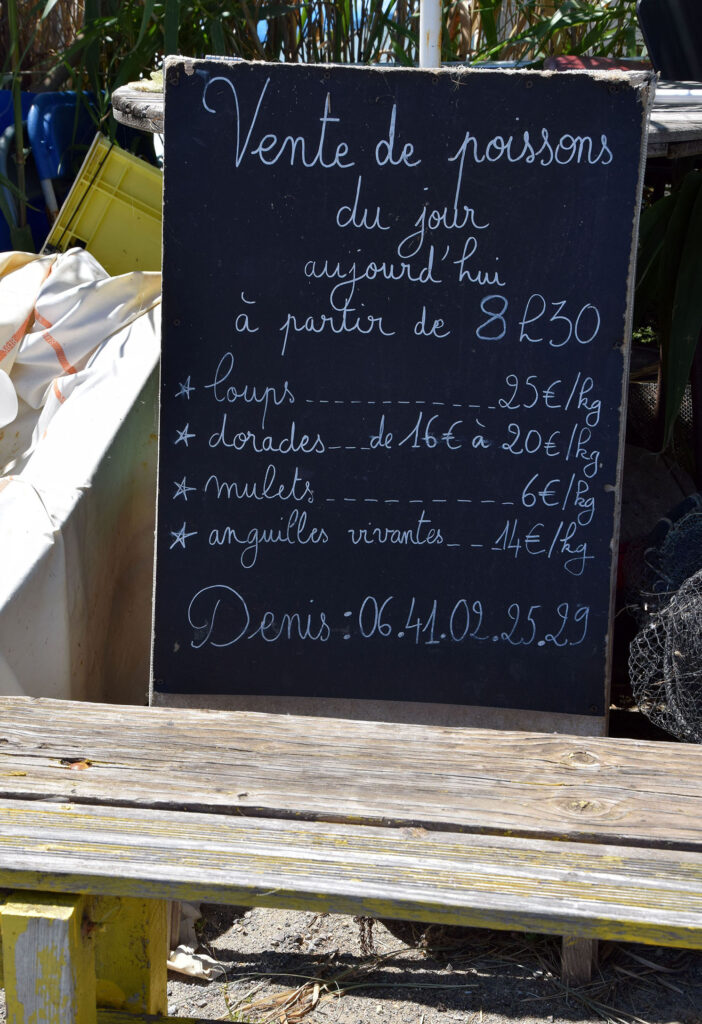 Vente de poissons
du jour
aujourd'hui
à partir de 8h30
* loups ------------ 25€/kg
* dorades --- de 16€ à 20€/kg.
* mulets ------------ 6€/kg
* anguilles vivantes --- 14€/kg
Denis : 06.41.02.25.29